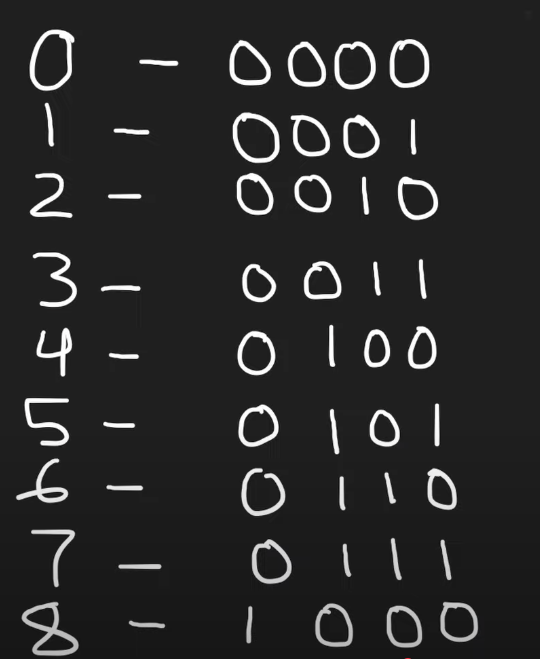 0 - 0000
1 - 0001
2 - 0010
3 - 0011
4 - 0100
5 - 0101
6 - 0110
7 - 0111
8 - 1000